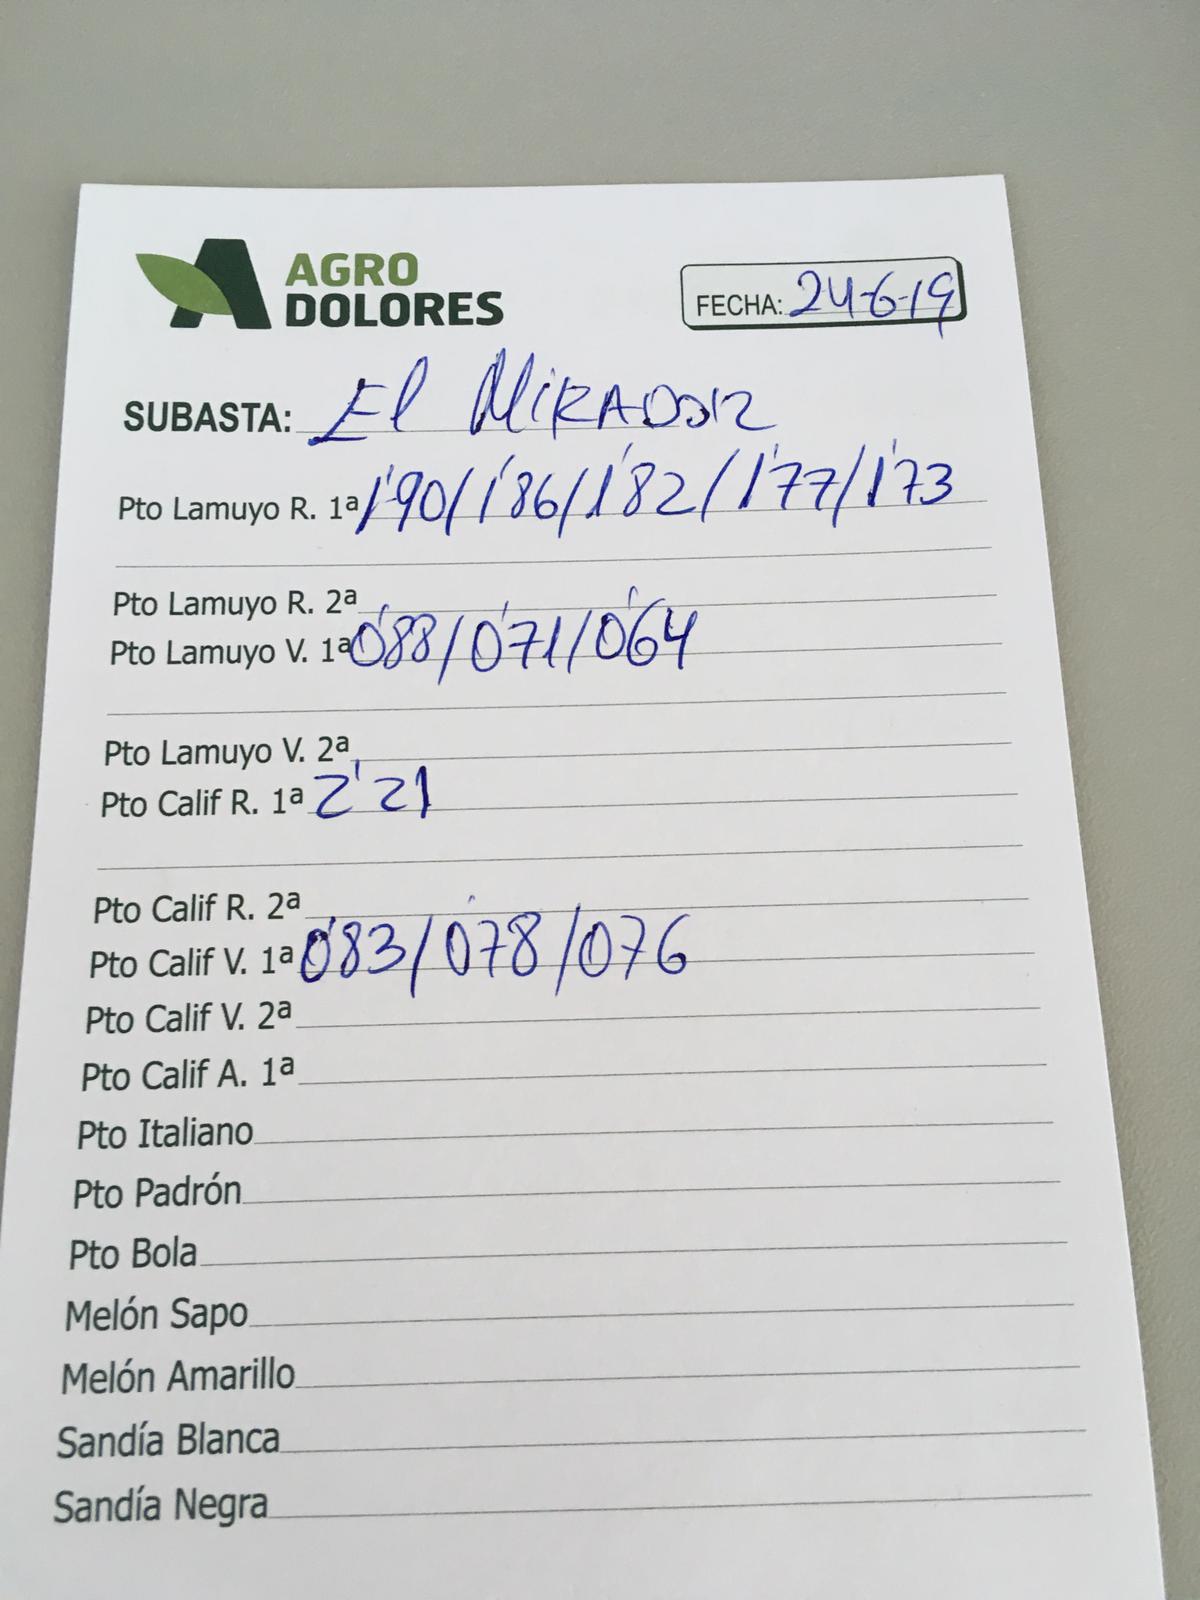 AGRO
DOLORES
FECHA: 24-6-19
SUBASTA: El MiRADOR
Pto Lamuyo R. 1ª 1'90/1'86/1'82/1'77/1'73
Pto Lamuyo R. 2ª
Pto Lamuyo V. 1ª 0'88/0'71/0'64
Pto Lamuyo V. 2ª
Pto Calif R. 1ª 2'21
Pto Calif R. 2ª
Pto Calif V. 1ª 0'83/0'78/076
Pto Calif V. 2ª
Pto Calif A. 1ª
Pto Italiano
Pto Padrón
Pto Bola
Melón Sapo
Melón Amarillo
Sandía Blanca
Sandía Negra